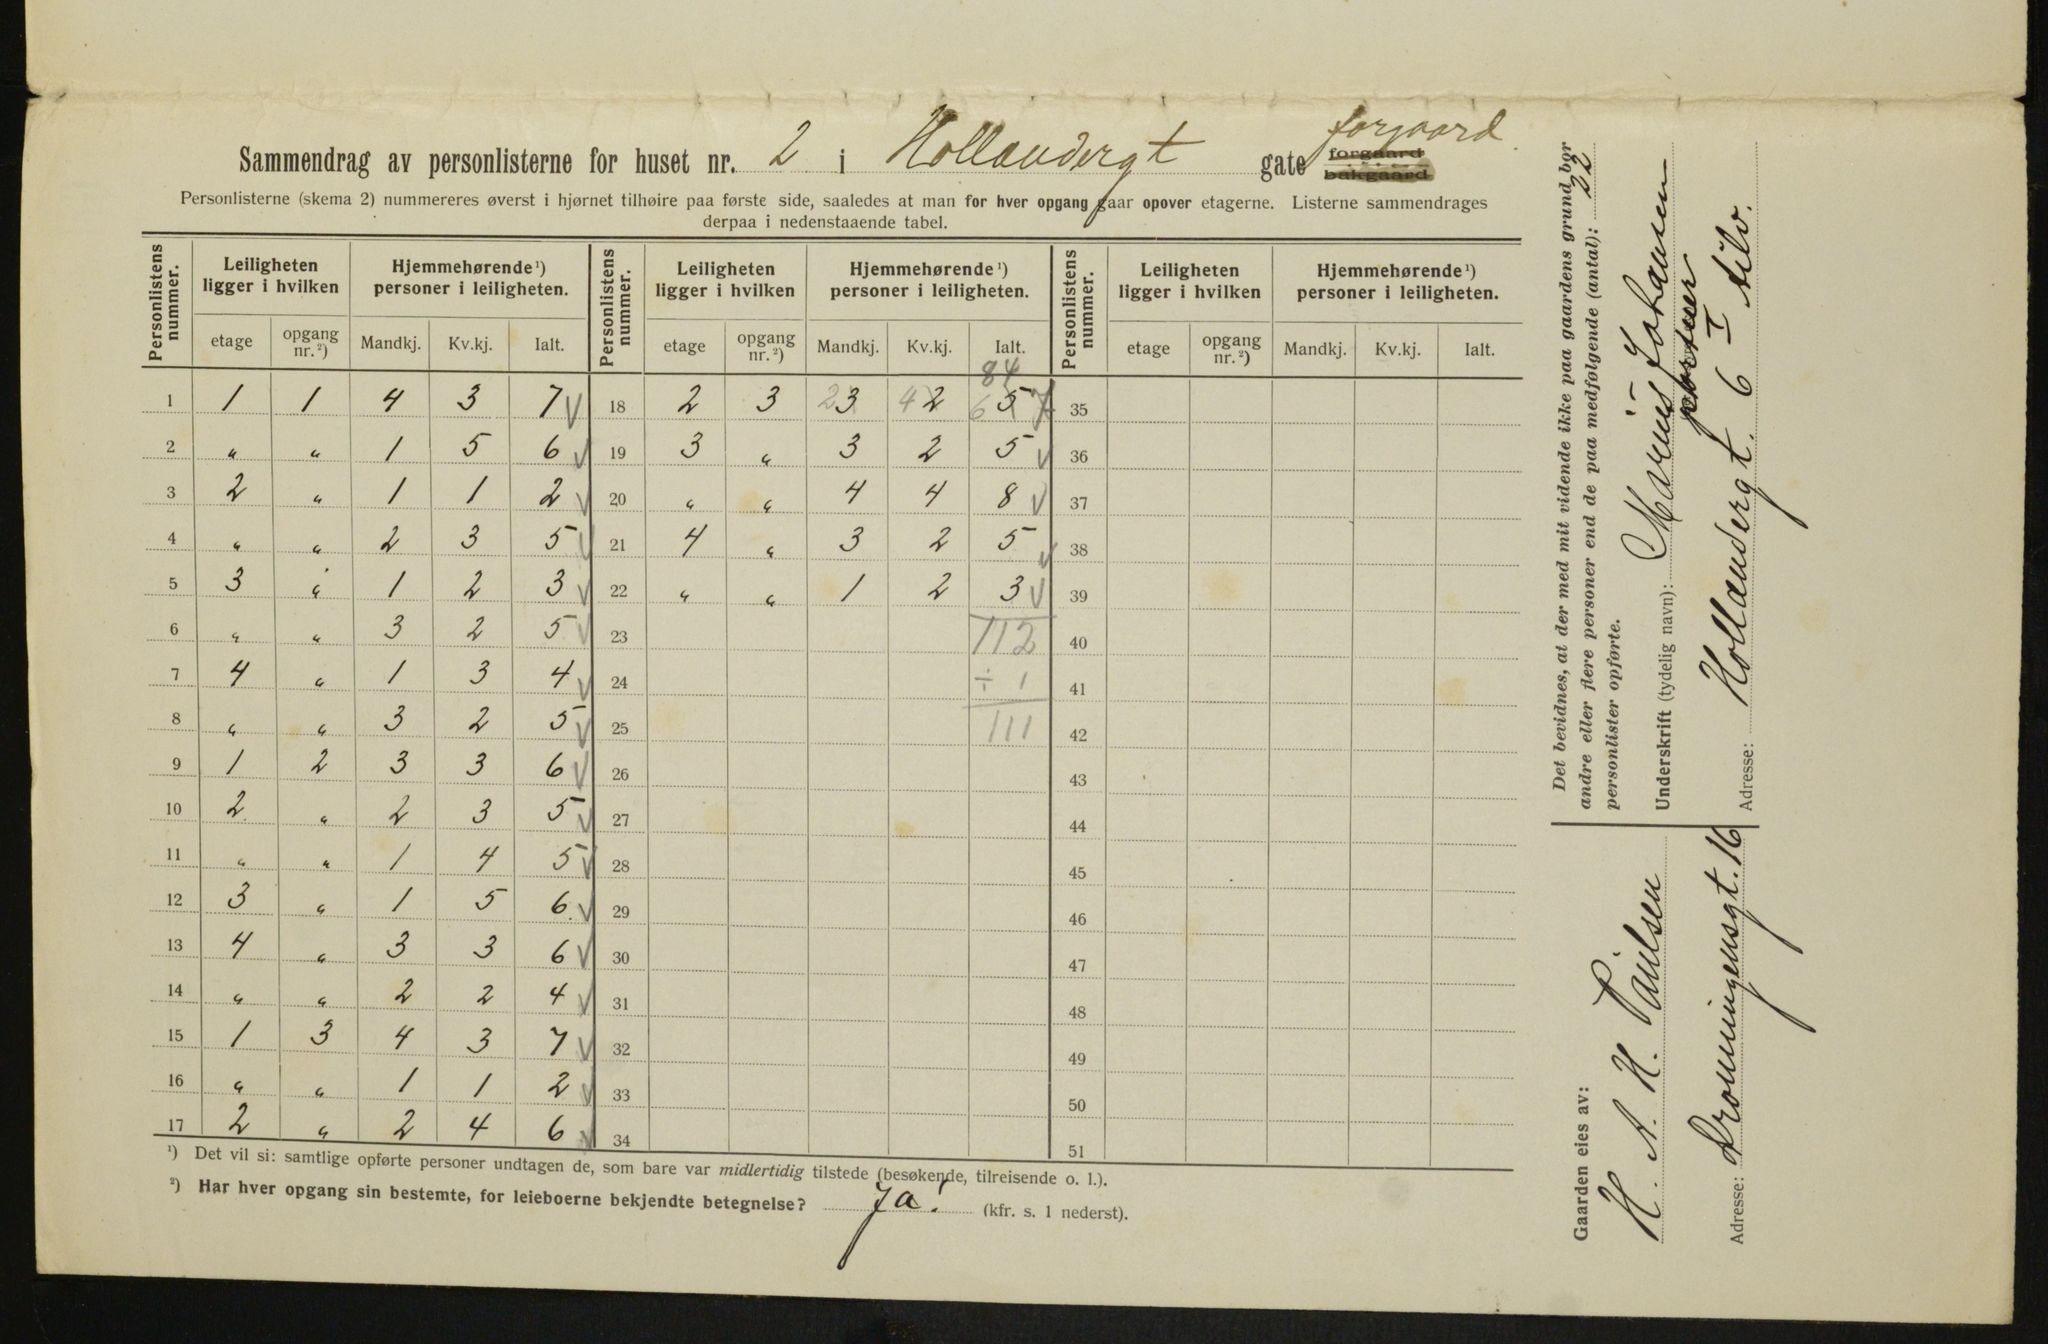 Sammendrag av personlisterne for huset nr. 2 i Hollændergt gate forgaard bakgaard forgaard
Personlisterne (skema 2) nummereres øverst i hjørnet tilhøire paa første side, saaledes at man for hver opgang gaar opover etagerne. Listerne sammendrages
derpaa i nedenstaaende tabel.
Personlistens nummer. Leiligheten ligger i hvilken Hjemmehørende ¹) personer i leiligheten. Personlistens nummer. Leiligheten ligger i hvilken Hjemmehørende ¹) personer i leiligheten. Personlistens nummer. Leiligheten ligger i hvilken Hjemmehørende ¹) personer i leiligheten.
etage opgang nr. ²) Mandkj. Kv.kj. Ialt. etage opgang nr. ²) Mandkj. Kv.kj. Ialt. etage opgang nr. ²) Mandkj. Kv.kj. Ialt.
84
1 1 1 4 3 7 √ 18 2 3 2 3 4 2 6 5 7 35
2 " " 1 5 6 √ 19 3 " 3 2 5 √ 36
3 2 " 1 1 2 √ 20 " " 4 4 8 √ 37
4 " " 2 3 5 √ 21 4 " 3 2 5 √ 38
5 3 " 1 2 3 √ 22 " " 1 2 3 √ 39
6 " " 3 2 5 √ 23 112 40
7 4 " 1 3 4 √ 24 ÷ 1 41
8 " " 3 2 5 √ 25 111 42
9 1 2 3 3 6 √ 26 43
10 2 " 2 3 5 √ 27 44
11 " " 1 4 5 √ 28 45
12 3 " 1 5 6 √ 29 46
13 4 " 3 3 6 √ 30 47
14 " " 2 2 4 √ 31 48
15 1 3 4 3 7 √ 32 49
16 " " 1 1 2 √ 33 50
17 2 " 2 4 6 √ 34 51
¹) Det vil si: samtlige opførte personer undtagen de, som bare var midlertidig tilstede (besøkende, tilreisende o. l.).
²) Har hver opgang sin bestemte, for leieboerne bekjendte betegnelse? Ja! (kfr. s. 1 nederst).
Det bevidnes, at der med mit vidende ikke paa gaardens grund bor
andre eller flere personer end de paa medfølgende (antal): 22
personlister opførte.
Underskrift (tydelig navn): Marius Johansen
portner
Adresse: Hollændergt. 6 I tilv.
Gaarden eies av:
H. A. H. Paulsen
Adresse: Dronningensgt. 16